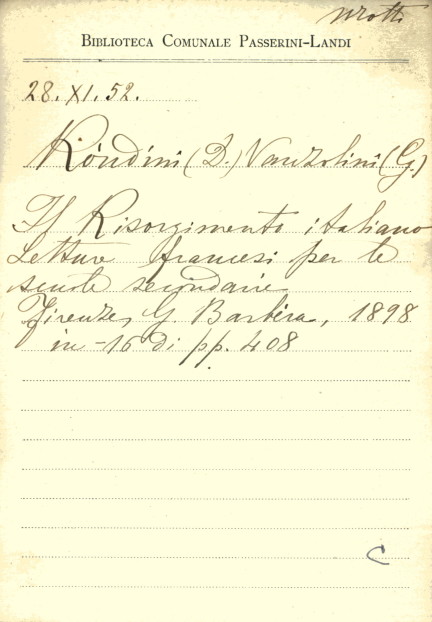 Motti
BIBLIOTECA COMUNALE PASSERINI-LANDI
28. XI. 52.
Rondini (D.) Vanzolini (G.)
Il Risorgimento italiano
Letture francesi per le
scuole secondarie
Firenze, G. Barbèra, 1898
in-16 di pp. 408
C